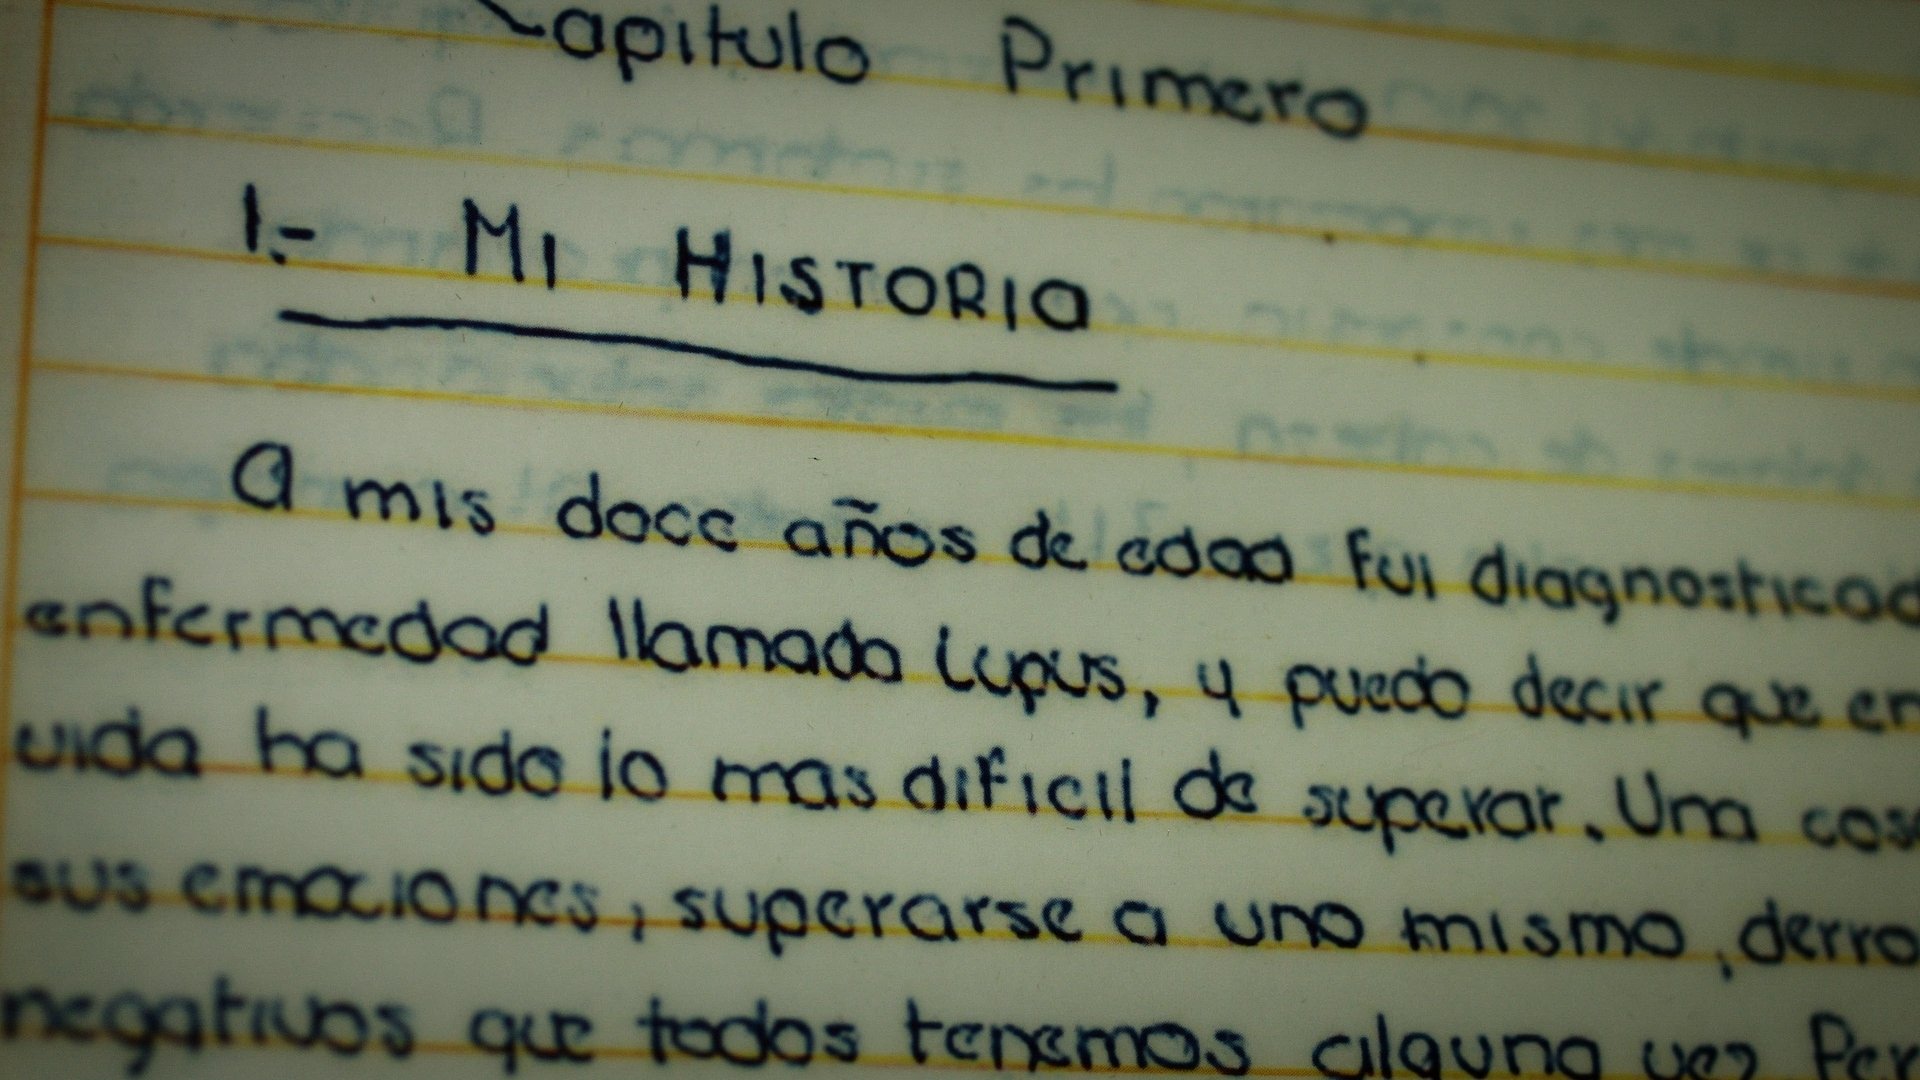 Capitulo Primero
1.- MI HISTORIA
A mis doce años de edad fui diagnosticad
enfermedad llamada Lupus, y puedo decir que en
vida ha sido lo mas dificil de superar. Una cosa
sus emociones, superarse a uno mismo, derro
negativos que todos tenemos alguna vez Per